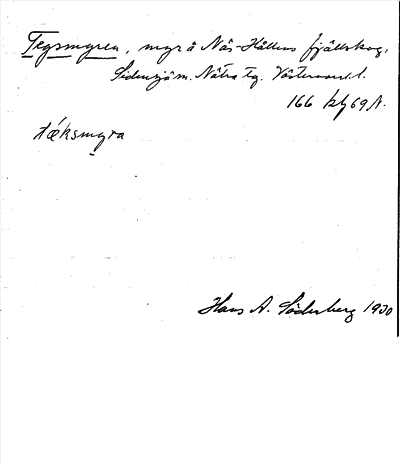 Tegsmyren, myr å Näs-Hållens fjällskog,
Sidensjö sn. Nätra tg. Västernorrl. l.
166 kbl 69 A.
tæksmyra
Hans A. Söderberg 1930